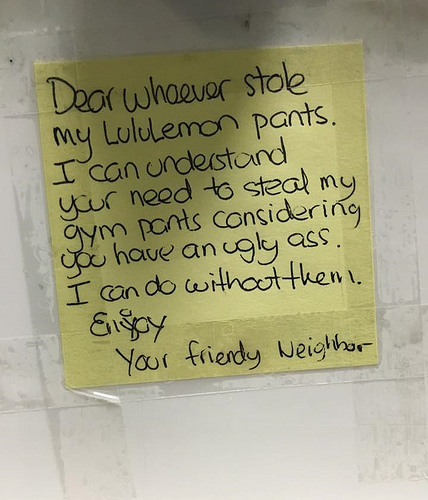 Dear whoever stole
my LuluLemon pants.
I can understand
your need to steal my
gym pants considering
you have an ugly ass.
I can do without them.
Enjoy
Your friendy Neighbor